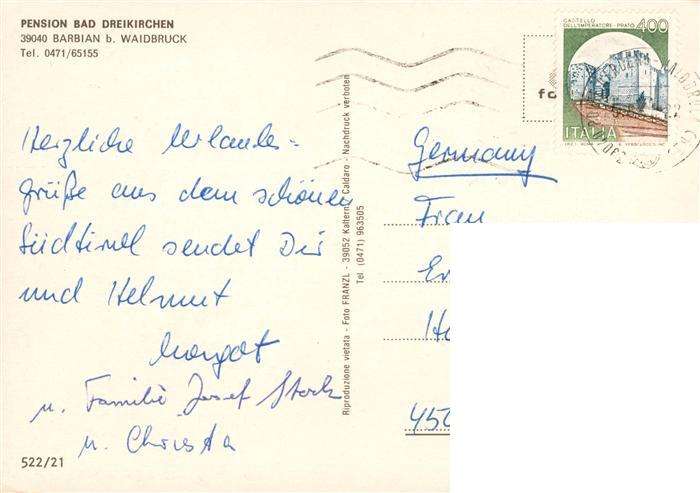 PENSION BAD DREIKIRCHEN
39040 BARBIAN b. WAIDBRUCK
Tel. 0471/65155
Herzliche Urlaubs=
grüße aus dem schönen
Südtirol sendet Dir
und Helmut
Margot
u. Familie Josef Stock
u. Christa
522/21
Riproduzione vietata - Foto FRANZL - 39052 Kaltern, Caldaro - Nachdruck verboten
Tel (0471) 963505
fo
CASTELLO
DELL'IMPERATORE - PRATO
400
ITALIA
Germany
Frau